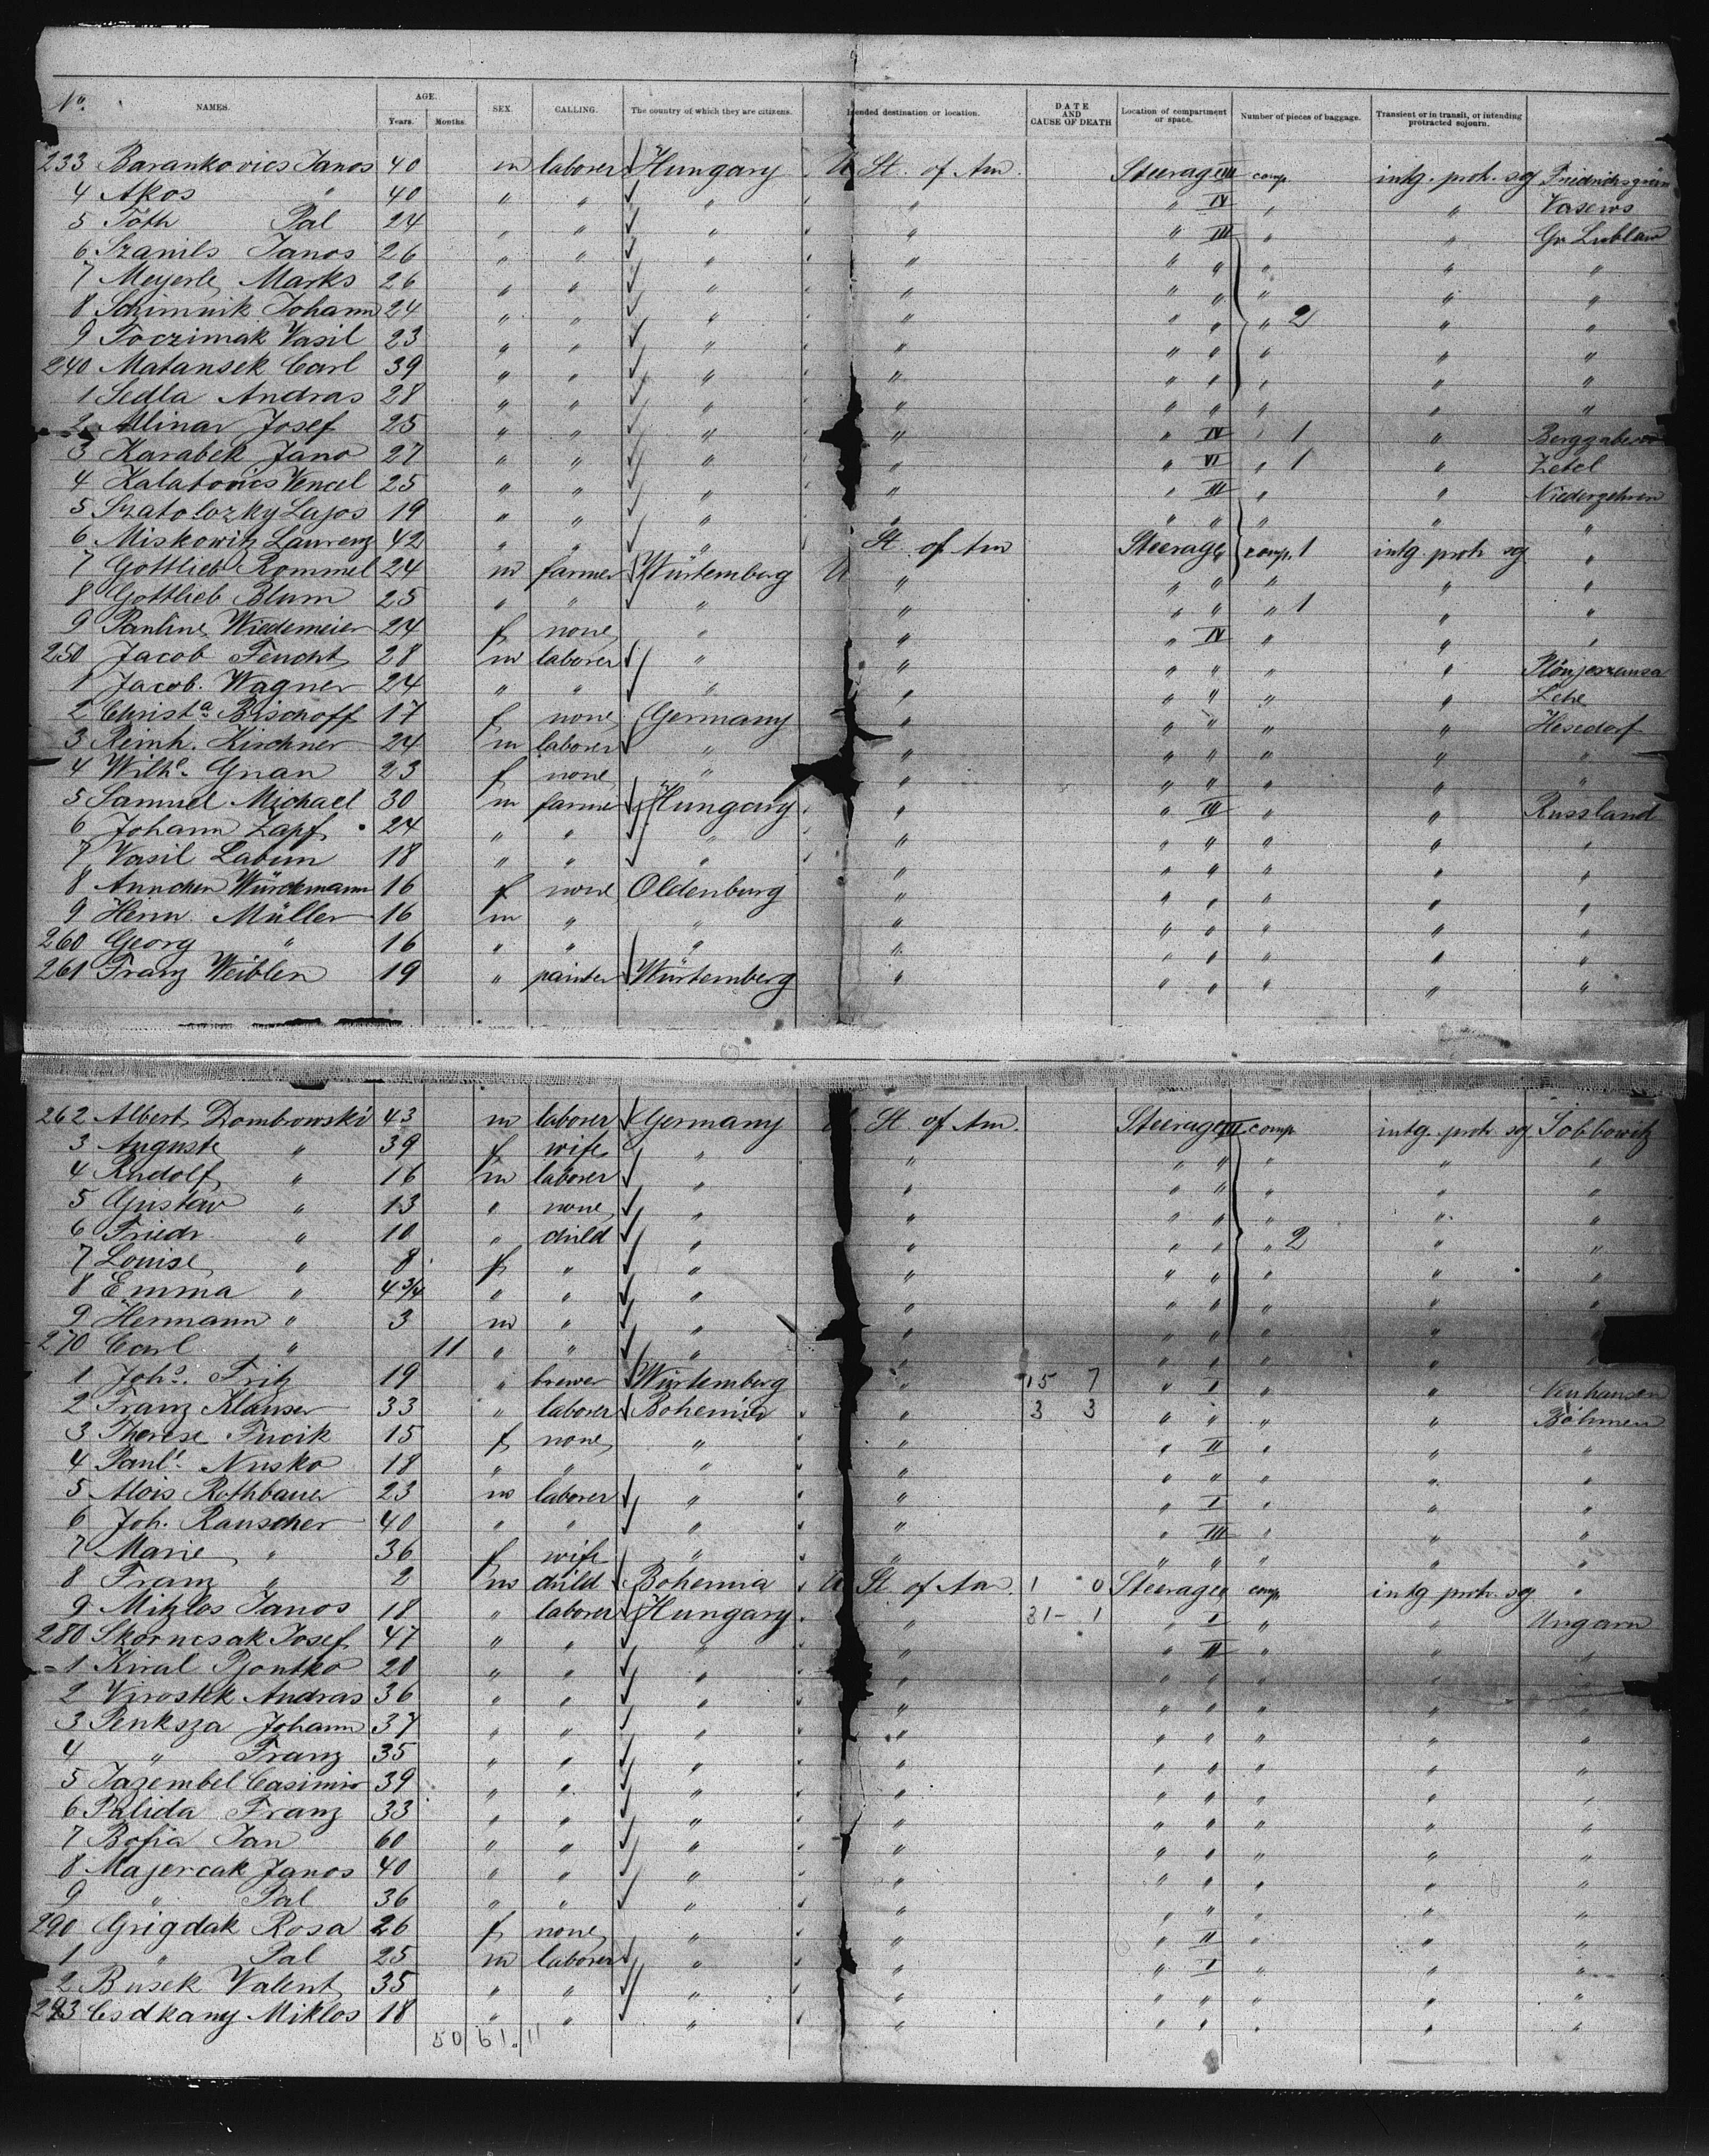 No. NAMES. AGE. Years. Months. SEX. CALLING. The country of which they are citizens. Intended destination or location. DATE AND CAUSE OF DEATH Location of compartment or space. Number of pieces of baggage. Transient or in transit, or intending protracted sojourn.
233 Barankovics Janos 40 m laborer Hungary U St. of Am. Steerage III comp. intg. protr. soj
4 Akos " 40 " " " " " IV " " Vaseros
5 Tóth Pal 24 " " " " " III " " Gr Lublau
6 Szanils Janos 26 " " " " " " " " "
7 Meyerle Marks 26 " " " " " " " " "
8 Schimnik Johann 24 " " " " " " " 2 " "
9 Toczimak Vasil 23 " " " " " " " " "
240 Matansek Carl 39 " " " " " " " " "
1 Sedla Andras 28 " " " " " " " " "
2 Mlinar Josef 25 " " " " " IV " 1 "
3 Karabek Jano 27 " " " " " VI " 1 " Zetel
4 Kalatovics Vencel 25 " " " " " III " " Niederzehren
5 Szatolozky Lajos 19 " " " " " " " " "
6 Miskowitz Laurenz 42 " " " St of Am Steerage " comp. 1 intg. protr soj "
7 Gottlieb Rommel 24 m farmer Würtemberg U " " " " " "
8 Gottlieb Blum 25 " " " " " " " 1 " "
9 Pauline Wiedemeier 24 f none " " " IV " " "
250 Jacob Feucht 28 m laborer " " " " " "
1 Jacob. Wagner 24 " " " " " " " " Lehe
2 Christa Bischoff 17 f none Germany " " " " " Hesedorf
3 Reinh. Kirchner 24 m laborer " " " " " " "
4 Wilhe. Gnan 23 f none " " " " " " "
5 Samuel Michael 30 m farmer Hungary " " III " " Russland
6 Johann Zapf 24 " " " " " " " " "
7 Vasil Labun 18 " " " " " " " " "
8 Annchen Würdemann 16 f none Oldenburg " " " " " "
9 Herm Müller 16 m " " " " " " " "
260 Georg " 16 " " " " " " " " "
261 Franz Weiblen 19 " painter Würtemberg " " " " " "
262 Albert Dombrowski 43 m laborer Germany U. St of Am. Steerage III comp intg protr soj Sobbowitz
3 Auguste " 39 f wife " " " " " " "
4 Rudolf " 16 m laborer " " " " " " "
5 Gustav " 13 " none " " " " " " "
6 Friedr. " 10 " child " " " " " 2 " "
7 Louise " 8 f " " " " " " " "
8 Emma " 4 3/4 " " " " " " " " "
9 Hermann " 3 m " " " " " " "
270 Carl " 11 " " " " " " " "
1 Johs. Fritz 19 " brewer Würtemberg " 15 7 " I " " Neuhausen
2 Franz Klauser 33 " laborer Bohemia " 3 3 " " " " Böhmen
3 Therese Fucik 15 f none " " " II " " "
4 Paul. Nusko 18 " " " " " " " " "
5 Alois Rothbauer 23 m laborer " " " I " " "
6 Joh. Rauscher 40 " " " " " III " " "
7 Marie " 36 f wife " " " " " " "
8 Franz " 2 m child Bohemia U St of Am. 1 0 Steerage " comp intg protr soj "
9 Mitzlos Janos 18 " laborer Hungary " 31 - 1 " I " " Ungarn
280 Skorncsak Josef 47 " " " " " III " " "
1 Kiral Pjontko 20 " " " " " " " " "
2 Virostek Andras 36 " " " " " " " " "
3 Penksza Johann 37 " " " " " " " " "
4 " Franz 35 " " " " " " " " "
5 Jazembel Casimir 39 " " " " " " " " "
6 Palida Franz 33 " " " " " " " " "
7 Bofia Jan 60 " " " " " " " " "
8 Majercak Janos 40 " " " " " " " " "
9 " Pal 36 " " " " " " " " "
290 Grigdak Rosa 26 f none " " " II " " "
1 " Pal 25 m laborer " " " I " " "
2 Busek Valent 35 " " " " " " " " "
293 Csdkany Miklos 18 " " " " " " " " "
50 61.11